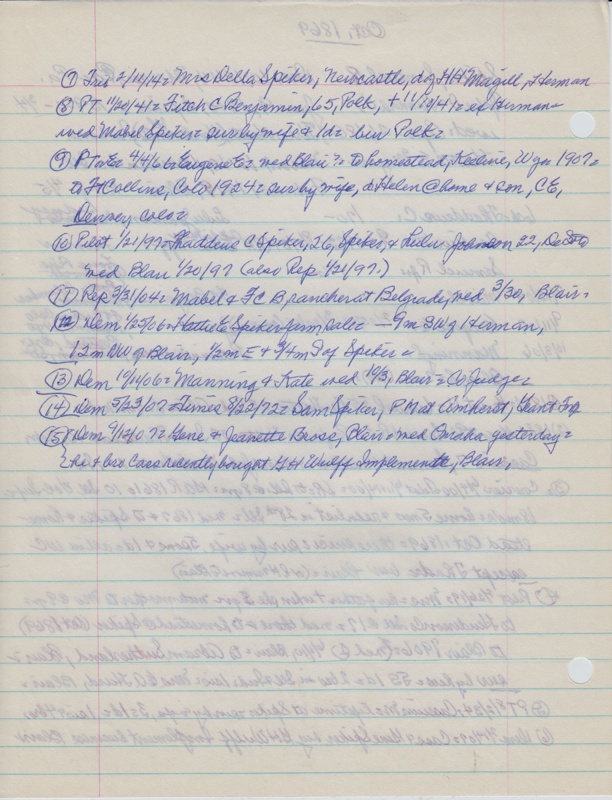 ⑦ Fri 2/12/14 = Mrs Della Spiker, Newcastle, d of HH Magill, Herman
⑧ PT 11/20/41 = Fitch C Benjamin, 65, Polk, + 11/10/41 = ex Herman =
wed Mabel Spiker = sur by wife & 1d = bur Polk =
⑨ PT 4/4/61 = Eugene E = wed Blair = to homestead, Keeline, Wyo 1907 =
to Ft Collins, Colo 1924 = sur by wife, d Helen @ home & son, C E,
Denver, Colo =
⑩ Pilot 1/21/97 = Thaddeus C Spiker, 26, Spiker, & Lulu Johnson 22,
wed Blair 1/20/97 (also Rep 1/21/97.)
⑪ Rep 3/31/04 = Mabel & FC B rancher at Belgrade, wed 3/30, Blair =
⑫ Dem 1/25/06 = Spiker farm sale = — 9m SW of Herman,
12m NW of Blair, 1/2m E & 3/4m of Spiker =
⑬ Dem 10/11/06 = Manning & Kate wed 10/3, Blair = Co Judge =
⑭ Dem 5/23/07 = 8/22/72 = Sam Spiker, PM at Amherst, Grant Twp
⑮ Dem 9/12/07 = Gene & Jeanette Brose, Blair = wed Omaha yesterday =
he & bro Case recently bought GH Wulff Implements, Blair,